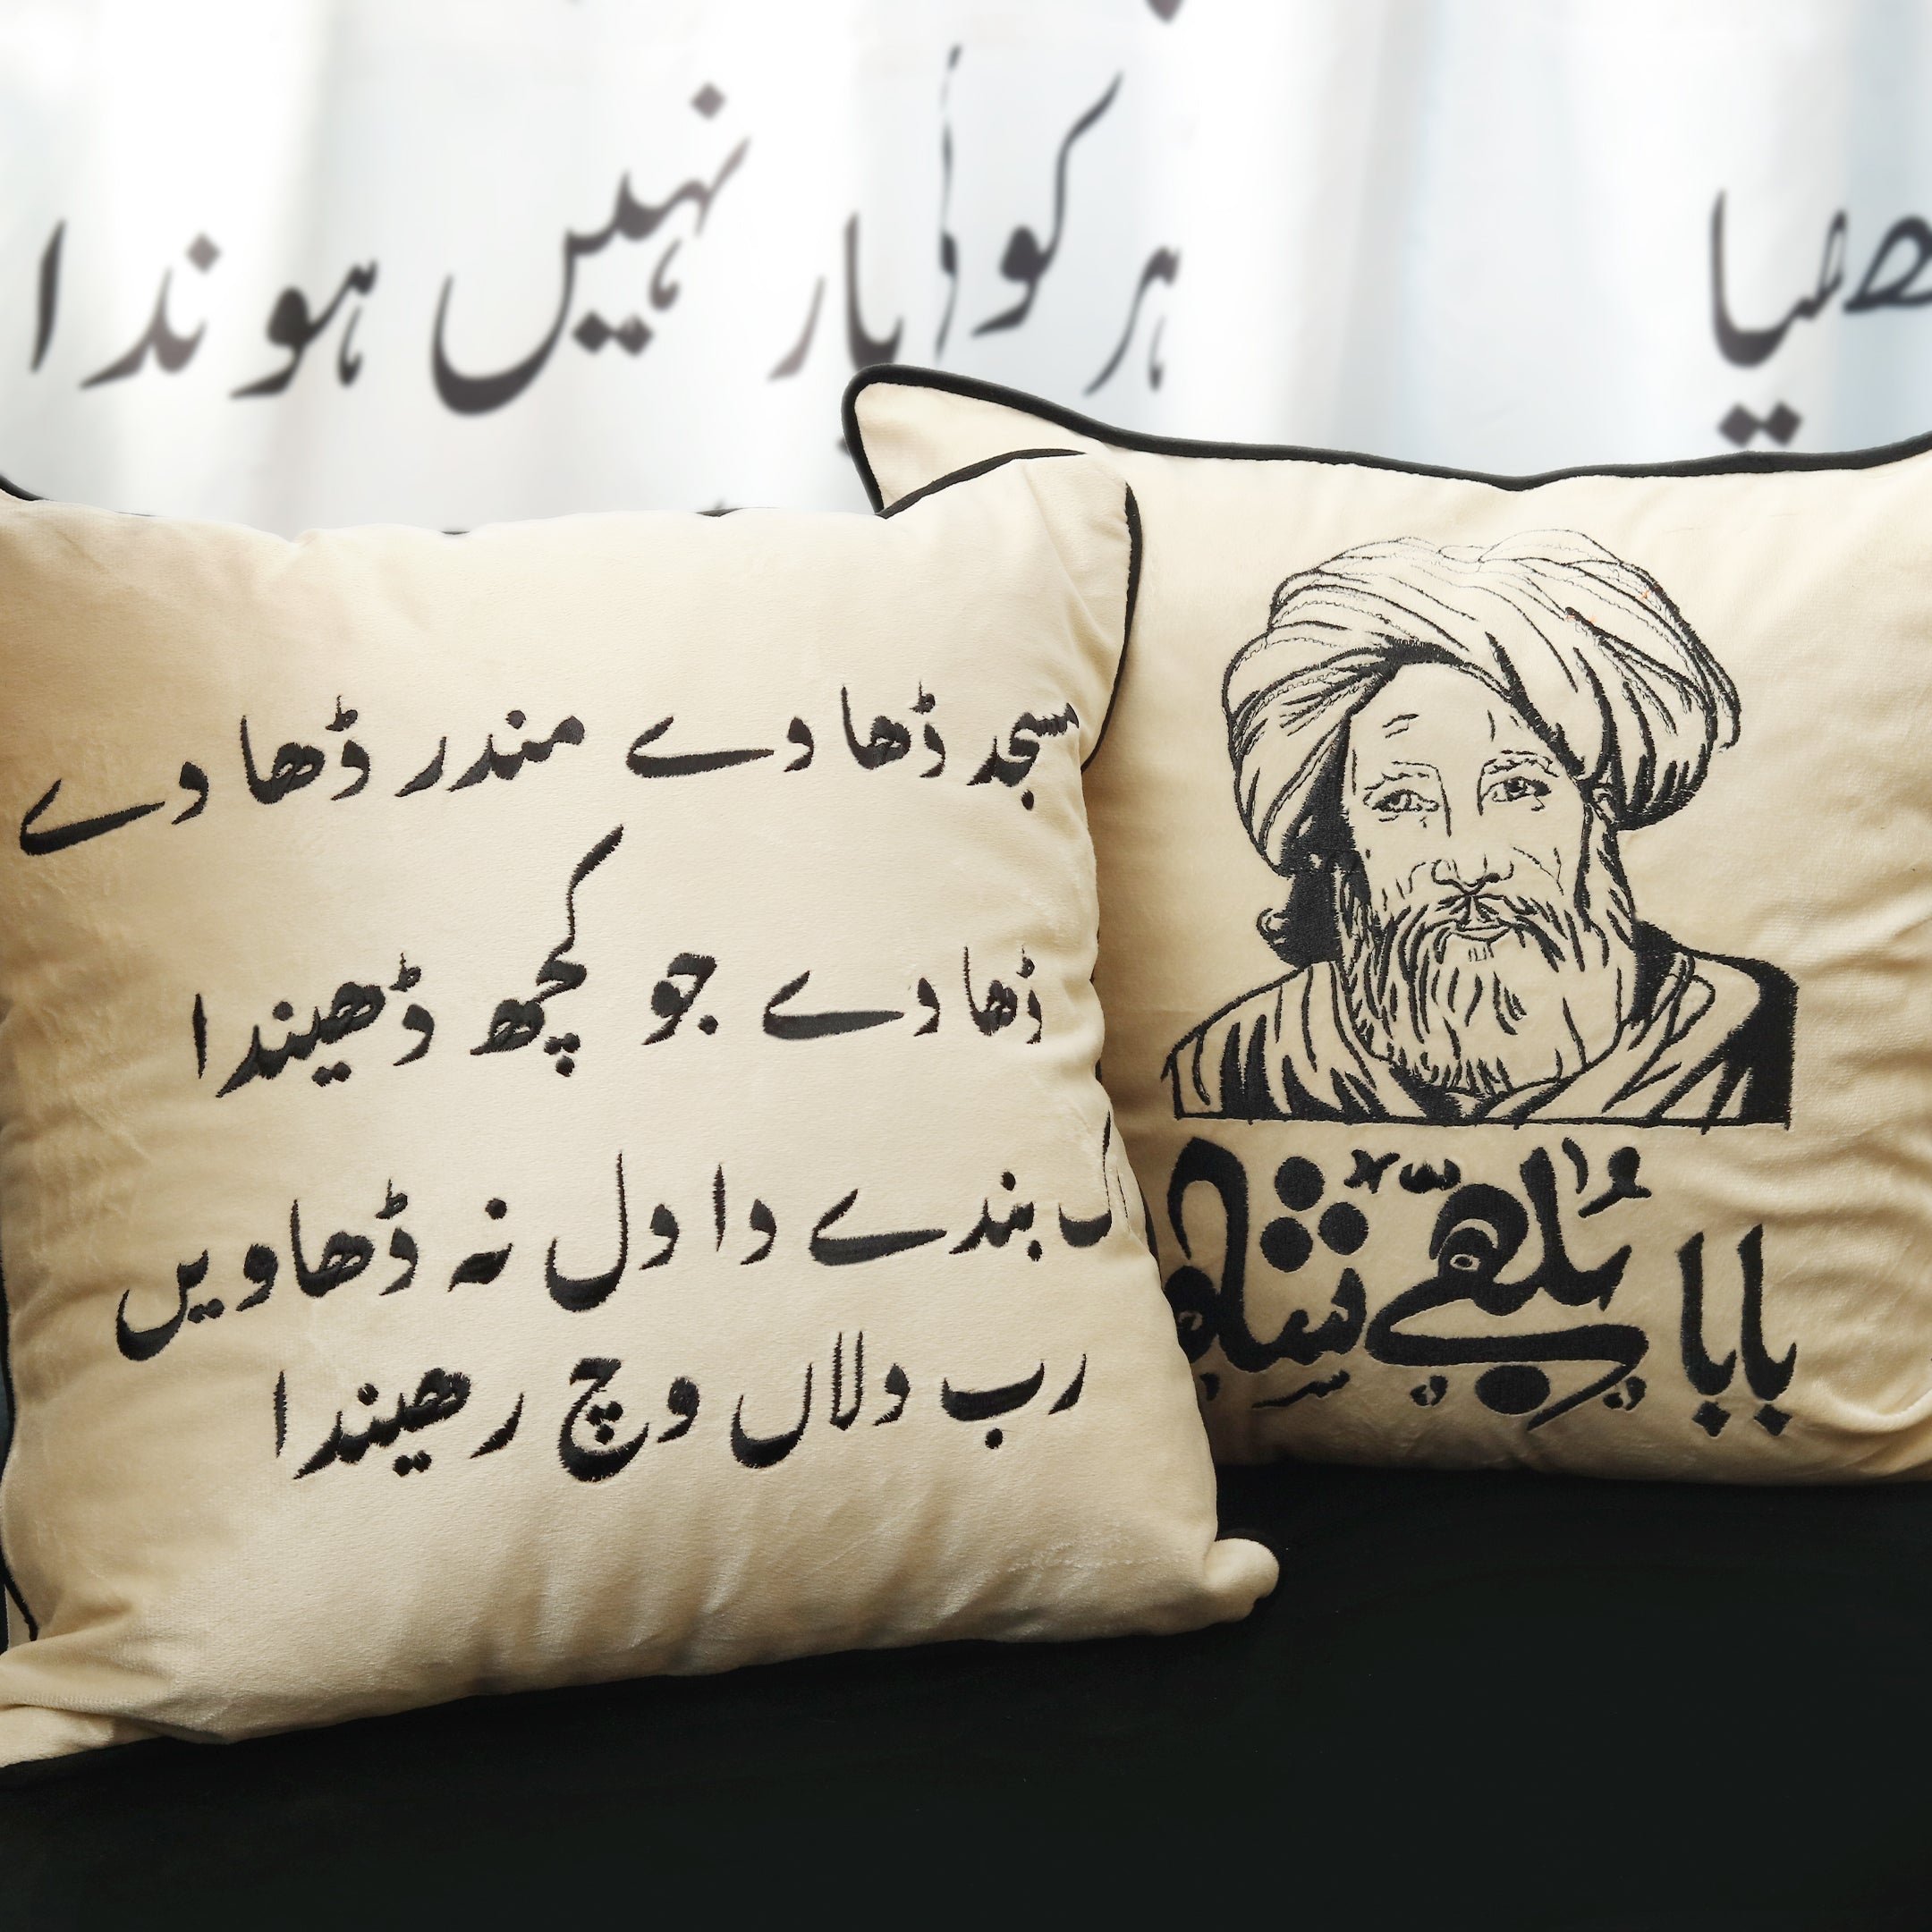 ہر کوئی یار نہیں ہوندا
مسجد ڈھا دے مندر ڈھا دے
ڈھا دے جو کچھ ڈھیندا
بندے دا دل نہ ڈھاویں
رب دلاں وچ رھیندا
بابا بُلھے شاہ